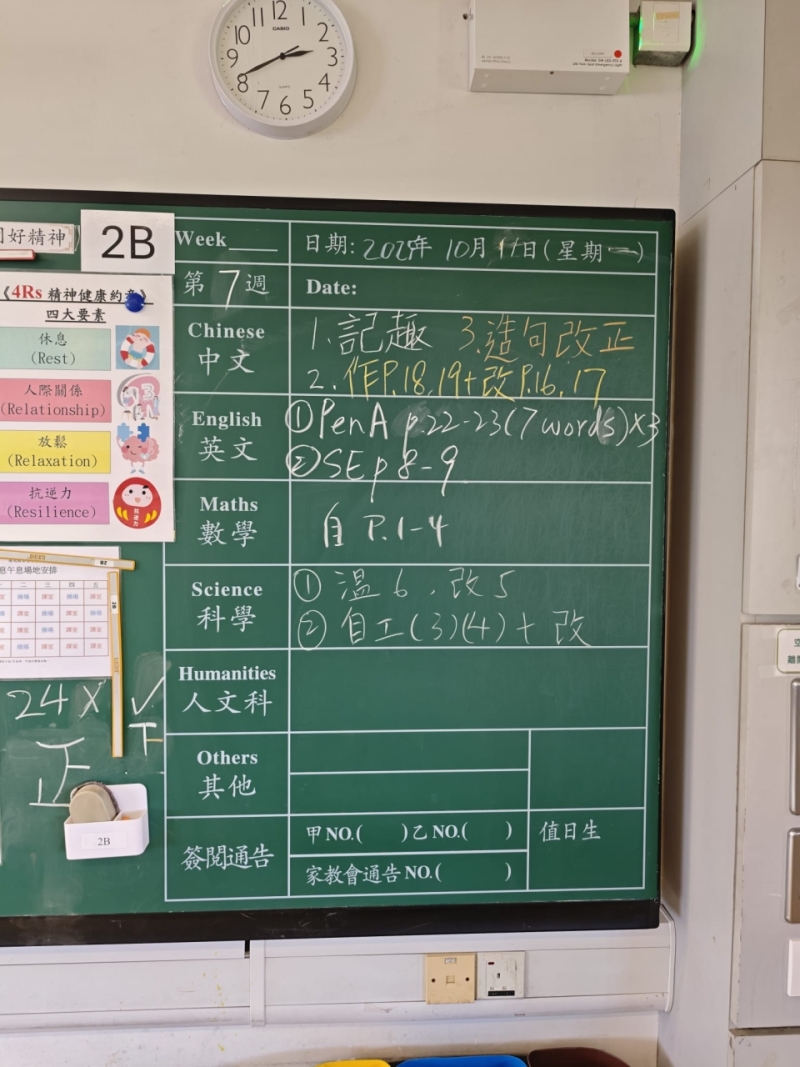 12
1
2
3
4
5
6
7
8
9
10
11
CASIO
QUARTZ
好精神
2B
《4Rs 精神健康約章》
四大要素
休息
(Rest)
人際關係
(Relationship)
放鬆
(Relaxation)
抗逆力
(Resilience)
抗逆力
息午息場地安排
24 X ✓
正 下
2B
Week____ 日期: 10月 日(星期一)
第7週 Date:
Chinese
中文
1.記趣 3.造句改正
2.作P.18,19+改P.16,17
English
英文
①PenA p.22-23(7 words)×3
②SE p 8-9
Maths
數學
自 P.1-4
Science
科學
① 溫 6 , 改 5
② 自工(3)(4)+ 改
Humanities
人文科
Others
其他
簽閱通告
甲NO.( )乙NO.( ) 值日生
家教會通告NO.( )